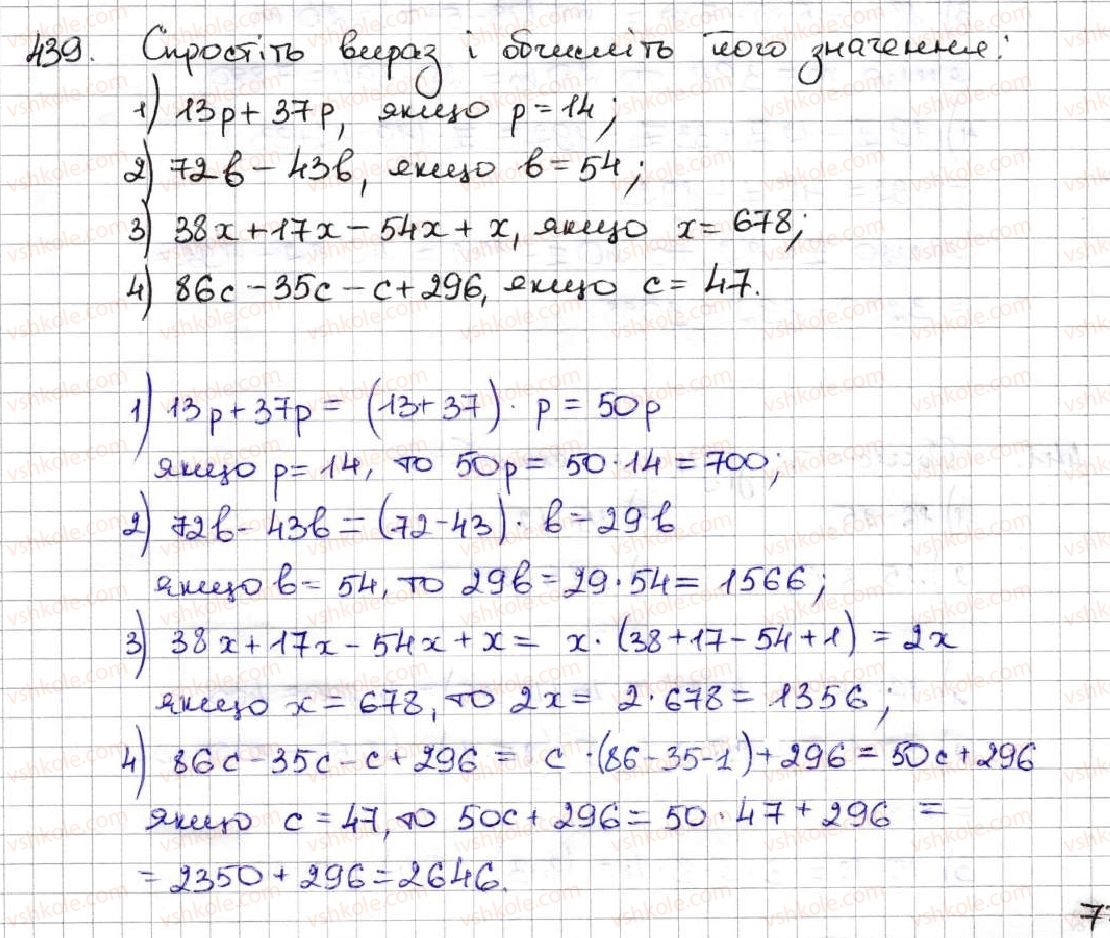 439. Спростіть вираз і обчисліть його значення:
1) 13p + 37p, якщо p = 14;
2) 72b - 43b, якщо b = 54;
3) 38x + 17x - 54x + x, якщо x = 678;
4) 86c - 35c - c + 296, якщо c = 47.
1) 13p + 37p = (13 + 37) · p = 50p
якщо p = 14, то 50p = 50 · 14 = 700;
2) 72b - 43b = (72 - 43) · b = 29b
якщо b = 54, то 29b = 29 · 54 = 1566;
3) 38x + 17x - 54x + x = x · (38 + 17 - 54 + 1) = 2x
якщо x = 678, то 2x = 2 · 678 = 1356;
4) 86c - 35c - c + 296 = c · (86 - 35 - 1) + 296 = 50c + 296
якщо c = 47, то 50c + 296 = 50 · 47 + 296 =
= 2350 + 296 = 2646.